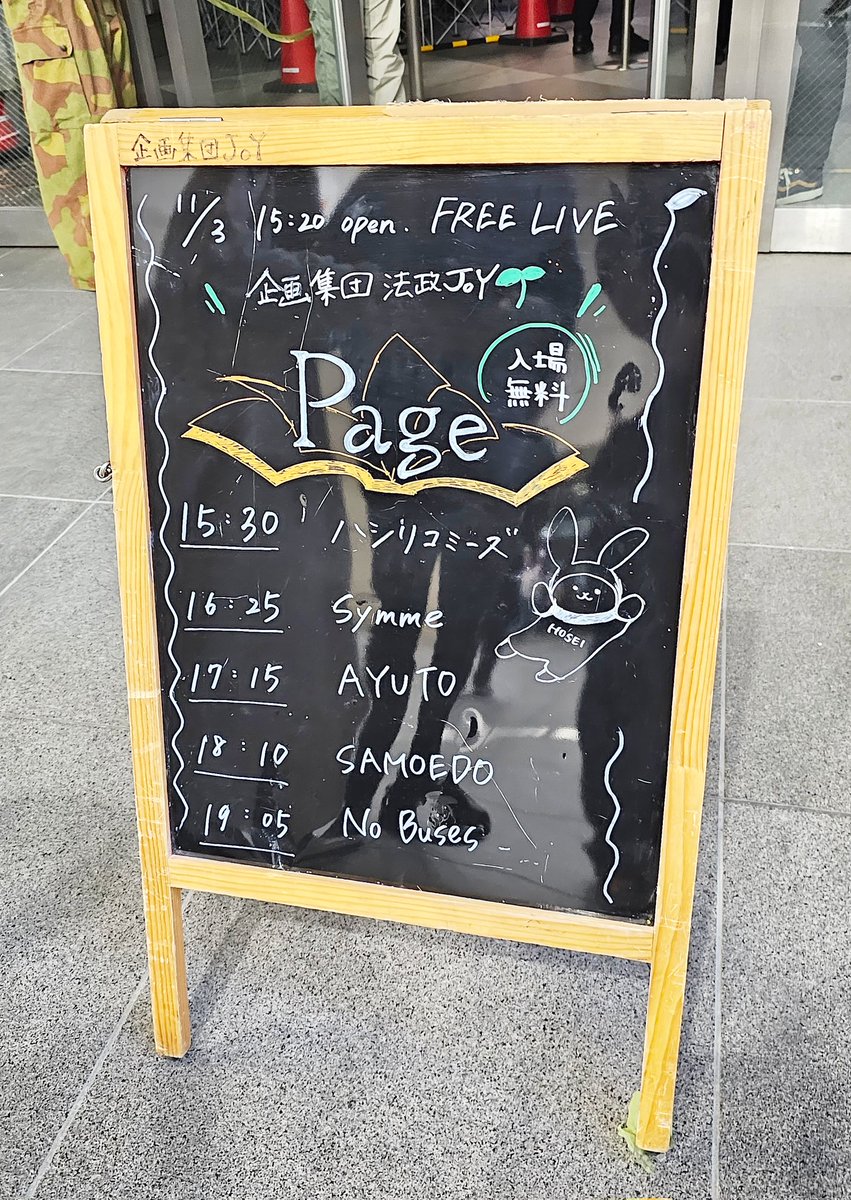 企画集団JoY
11/3 15:20 open. FREE LIVE
企画集団 法政JoY
入場
無料
Page
15:30 ハシリコミーズ
16:25 Symme
HOSEI
17:15 AYUTO
18:10 SAMOEDO
19:05 No Buses